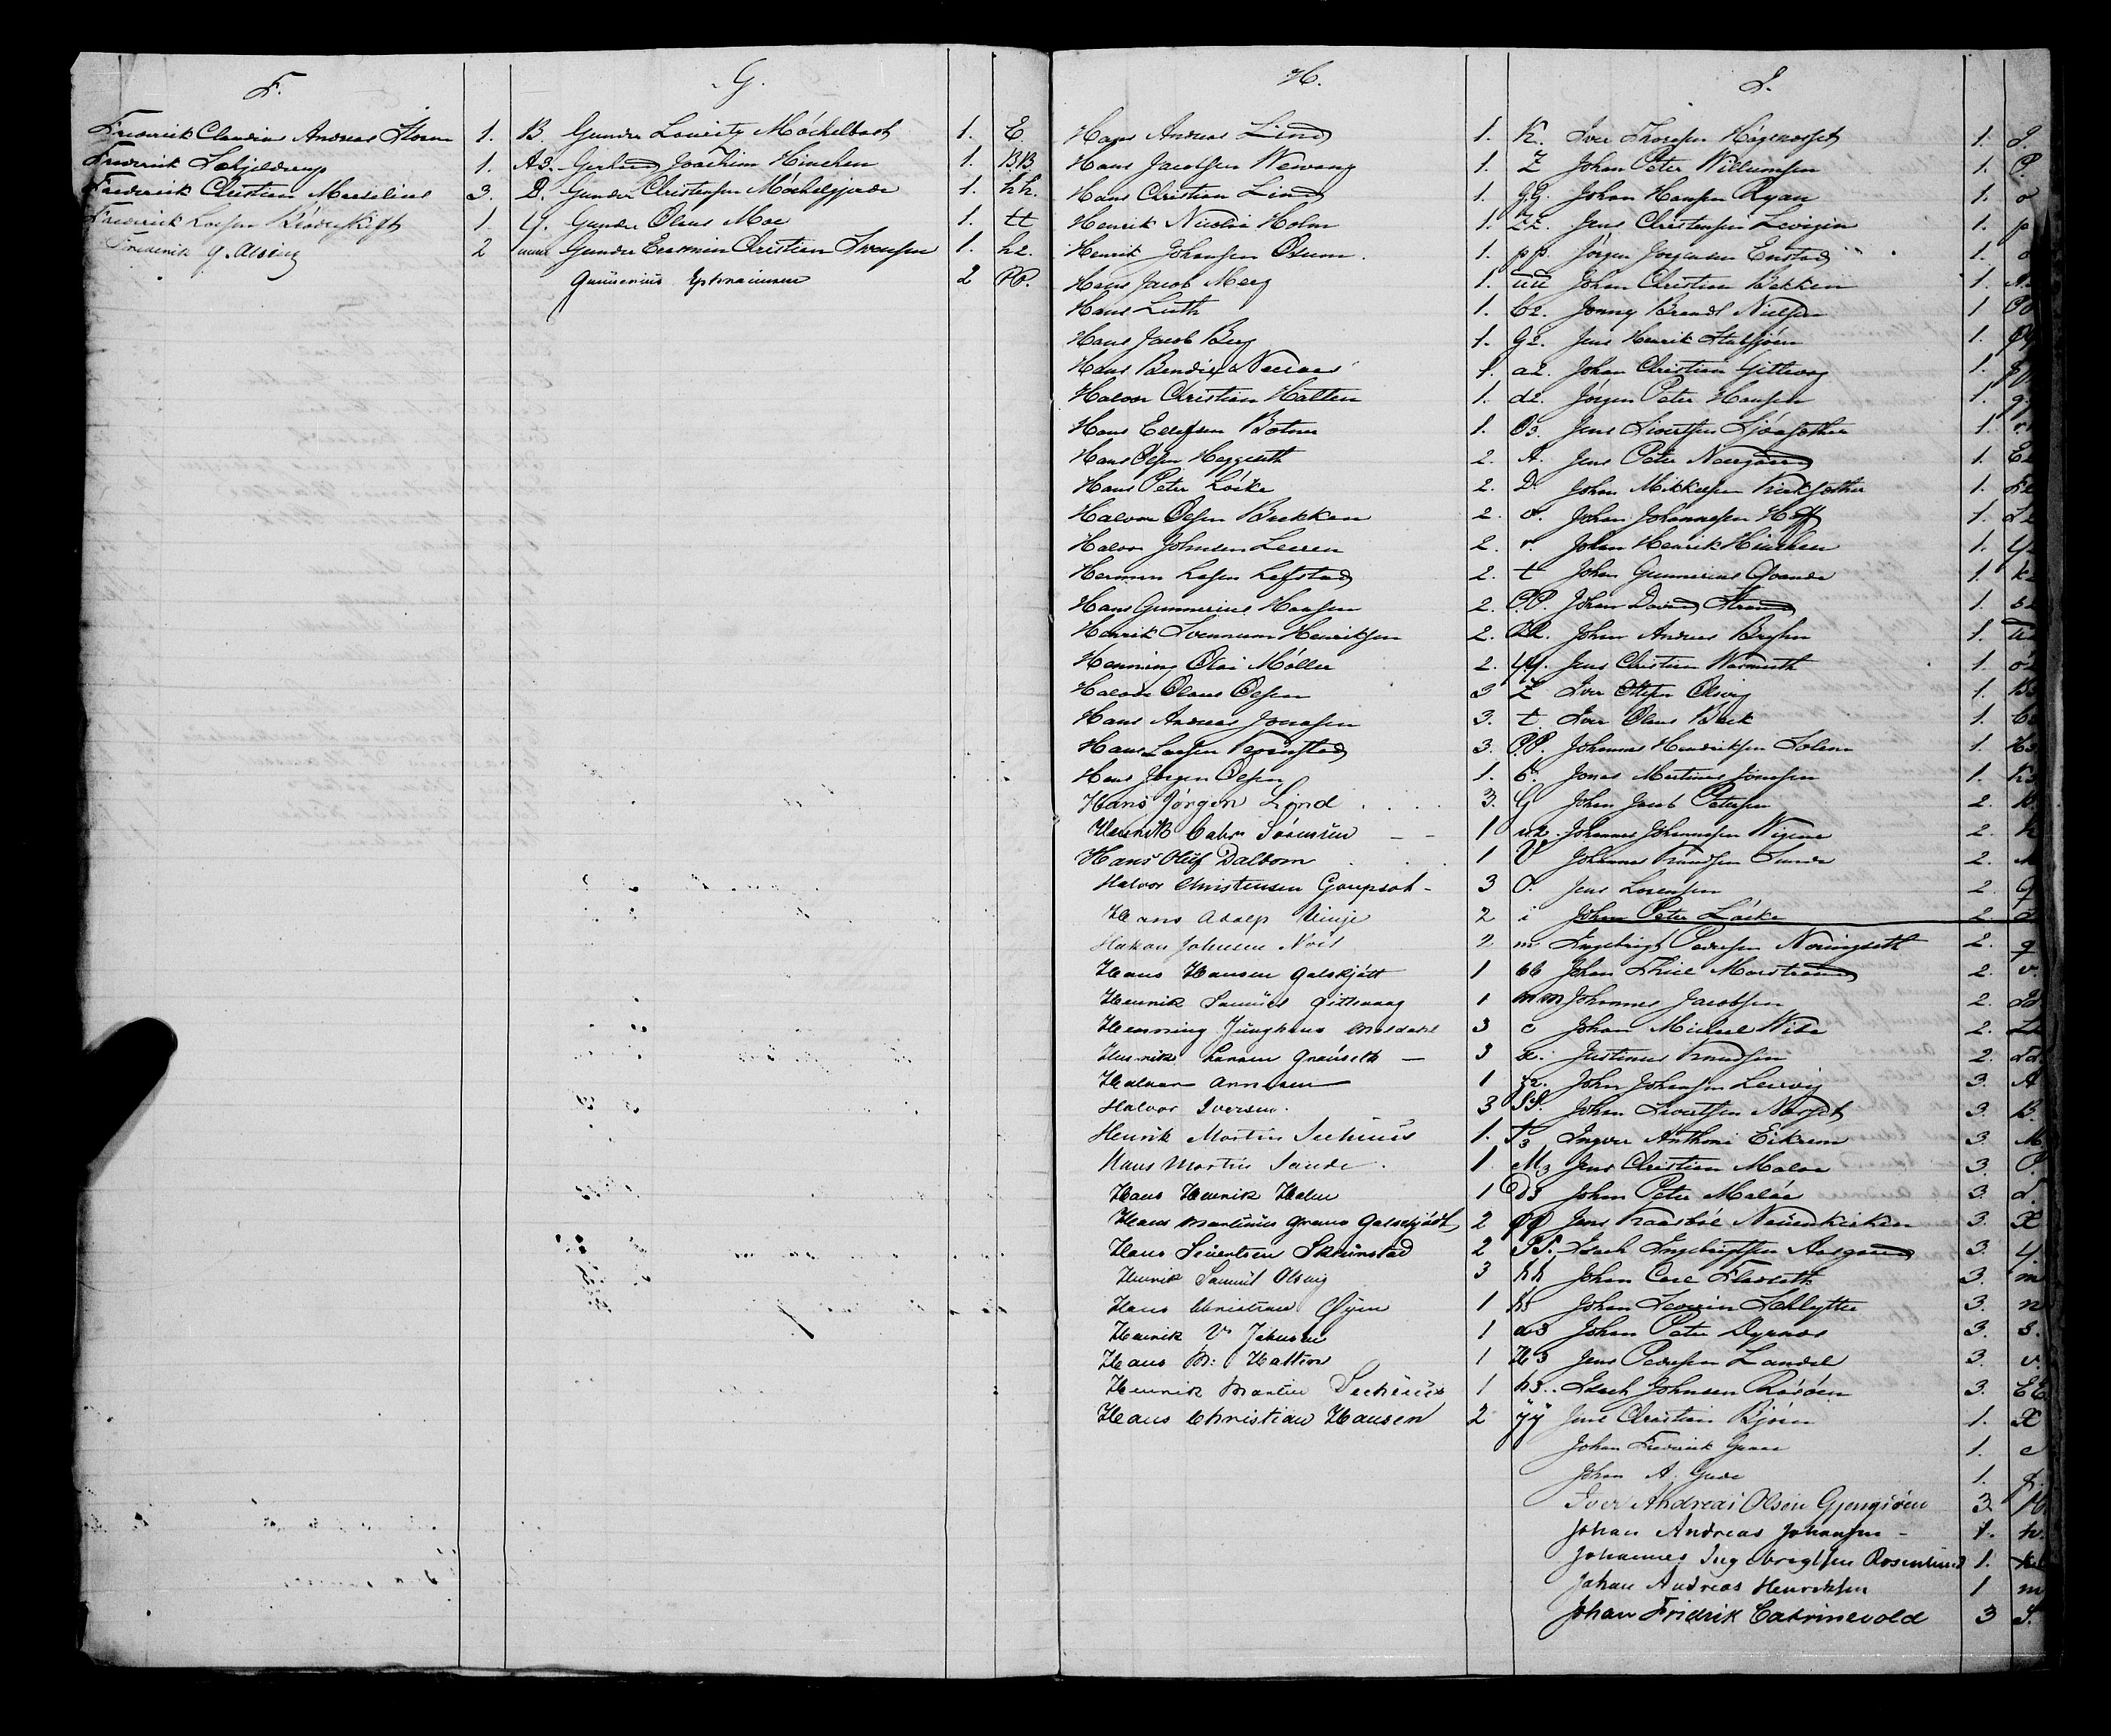 F.
Frederick Claudius Andreas Storm 1. B.
Frederik Schjelderup 1. AB.
Frederick Christian Marselius 3. D.
Frederick Larsen 1. Y.
Frederik G. Alsing 2
G.
Gunder Lauritz Möchelbost 1. E
Gerhard Joachim Hinchen 1. BB.
Gunder Christensen Möchelgjerde 1. hh.
Gunder Olaus Moe 1. tt
Gunder Erasmin Christian Svensen 1. h2.
Gunnerius 2 PP.
H.
Hans Andreas Lind 1. K.
Hans Jacobsen Wewang 1. Z
Hans Christian Lind 1. GG.
Henrik Nicolai Holm 1. ZZ.
Henrik Johansen Osum. 1. pp.
Hans Jacob Meeg 1. uu
Hans Luth 1. C2.
Hans Jacob Berg 1. G2.
Hans Bendix Neeraas 1. a2.
Halvor Christian Hatten 1. d2.
Hans Ellefsen Botner 1. O3.
Hans Olsen Heggseth 2. A.
Hans Peter Löcke 2. D.
Halvor Olsen Bakken 2. o.
Halvor Johnsen Leeren 2. r.
Herman Larsen Lefstad 2. t
Hans Gunnerius Hansen 2. PP.
Henrik Svennum Henriksen 2. RR.
Henning Olai Möller 2. YY.
Halvor Olaus Olsen 3 Z
Hans Andreas Jonasen 3. t.
Hans Larsen 3. PP.
Hans Jörgen Olsen 1. 6.
Hans Jörgen Lind 3. G
Henrik Cabr. Sörensen 1 n2.
Hans Oluf Dalbom 1 V
Halvor Christensen Gaupset 3 O.
Hans Adolp Vinje 2 i
Hakon Johnsen 2 m
Hans Hansen Galskjött 1 66
Henrik Samuel Gittevaag 1 mm
Henning Junghans Meldahl 3 c
Henrik Larsen Grönseth 3 x.
Halvor Arnesen 1 z2.
Halvor Iversen. 3 SS.
Henrik Martin Sechuus 1. S3
Hans Martin Sande. 1. M3
Hans Henrik Holm 1 D3
Hans Martinus Grams Galskjödt 2 QQ
Hans Sivertsen Skrinstad 2 SS.
Henrik Samuel Olsvig 3 hh
Hans Christian Öyen 1 k3
Henrik V. Johnsen 1 a3
Hans M. Hatten 1 H3
Henrik Martin Sechuus 1 h3.
Hans Christian Hansen 2 yy
I.
Iver Thoresen Högsnesset 1. J.
Johan Peter Willumsen 1. P.
Johan Hansen Ryan 1. o
Jens Christensen Levigen 1. p
Jörgen Jörgensen Enstad 1. d
Johan Christian Bekken 1.
Jonny Brandt Nielsen 1
Jens Henrik Stabsjöen 1.
Johan Christian Gittevag 1.
Jörgen Peter Hansen 1.
Jens Sivertsen Sjöasæther 1.
Jens Peter Neergaard 1.
Johan Mikkelsen Kirksæther 1.
Johan Johannesen Hoff 1.
Johan Henrik Hinchen 1.
Johan Gunnerius Qvande 1.
Johan David Strand 1.
Johan Andreas Bryhn 1.
Jens Christian Warmuth 1.
Iver Ottesen Olsvig 1.
Iver Olaus Beck 1.
Johannes Hendriksen Solem 1.
Jonas Martinus Jonasen 1.
Johan Jacob Petersen 2.
Johannes Johannesen Wigene 2.
Johannes Knudsen Sunde 2.
Jens Lorensen 2.
Johan Peter Löcke 2.
Ingebrigt Pedersen Noringseth 2. q
Johan Thue Morstrand 2. v.
Johannes Jacobsen 2.
Johan Michael Wide 2.
Justinus Knudsen 2.
John Johansen Lervig 3. A
Johan Sivertsen Næsset 3. B.
Ingvar Anthoni Eikrem 3. M
Jens Christian Maloe 3. P.
Johan Peter Malöe 3. d.
Jens Kaasböl Neuenkirken 3. X
Isach Ingebrigtsen Aasgaard 3. y.
Johan Carl Fladseth 3. m
Johan Severin Schlytter 3. n
Johan Peter Dyrnæs 3. s.
Jens Pedersen Landöe 3. v.
Isach Johnsen Rösöen 3. CC
Jens Christian Björn 1. X
Johan Frederick Graae 1. c
Johan A. Gude 1.
Iver Andreas Olsen Gjengsöen 3.
Johan Andreas Johansen 1. h.
Johannes Ingebregtsen Rosenlund 1.
Johan Andreas Henriksen 1 m
Johan Fridrik Catrinevold 3 S.